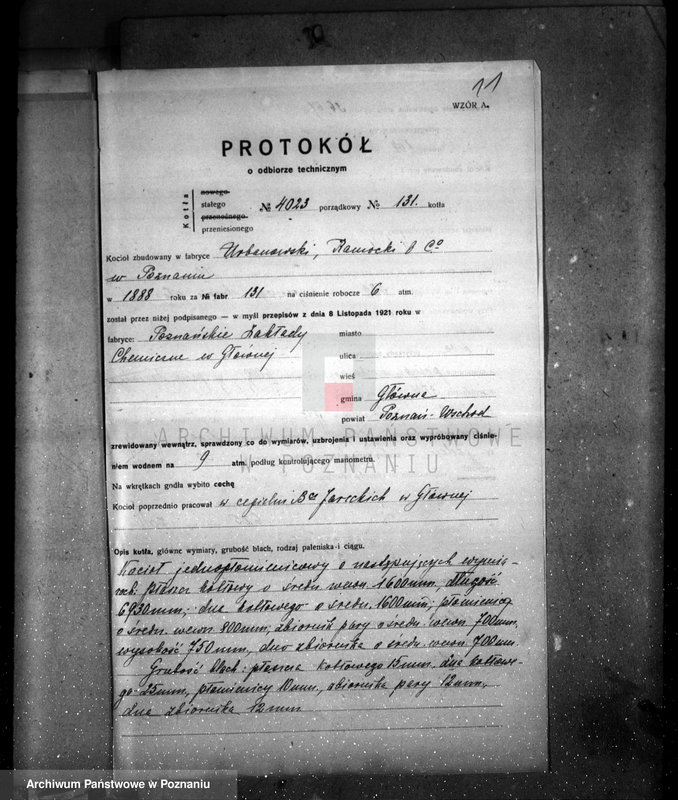 11
WZÓR A.
PROTOKÓŁ
o odbiorze technicznym
Kotła
nowego
stałego
przenośnego
przeniesionego
№ 4023 porządkowy № 131. kotła
Kocioł zbudowany w fabryce Urbanowski, Ramocki & Co
w Poznaniu
w 1888 roku za № fabr 131 na ciśnienie robocze 6 atm.
został przez niżej podpisanego — w myśl przepisów z dnia 8 Listopada 1921 roku w
fabryce: Poznańskie Zakłady miasto
Chemiczne w Głównej ulica
wieś
gmina Główna
powiat Poznań-Wschod
ARCHIWUM PAŃSTWOWE
W POZNANIU
zrewidowany wewnątrz, sprawdzony co do wymiarów, uzbrojenia i ustawienia oraz wypróbowany ciśnie-
niem wodnem na 9 atm. podług kontrolującego manometru.
Na wkrętkach godła wybito cechę
Kocioł poprzednio pracował w cegielni Bci Jareckich w Głównej
Opis kotła, główne wymiary, grubość blach, rodzaj paleniska i ciągu.
Kocioł jednopłomienicowy o następujących wymia-
rach: płaszcz kotłowy o średn. wewn. 1600 mm, długość
6930 mm; dna kotłowego o średn. 1600 mm; płomienicy
o średn. wewn. 800 mm; zbiornik pary o średn. wewn. 700 mm,
wysokość 750 mm, dno zbiornika o średn. wewn. 700 mm.
Grubość blach: płaszcza kotłowego 15 mm. dna kotłowe-
go 25 mm, płomienicy 10 mm., zbiornika pary 12 mm.,
dna zbiornika 12 mm
Archiwum Państwowe w Poznaniu